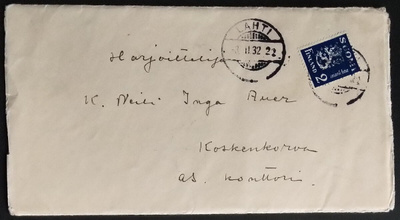 LAHTI
II 32 22
SUOMI
FINLAND
2
Harjoittelija
K. Neiti Inga Auer
Koskenkorva
as. konttori.